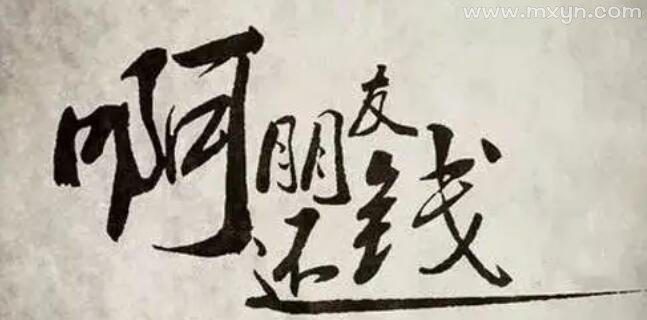 www.mxyn.com
啊朋友
还钱